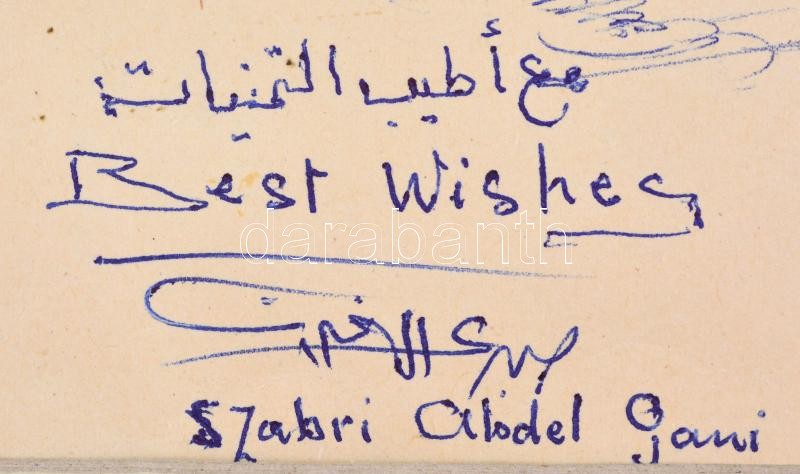 مع أطيب التمنيات
Best Wishes
darabanth
Szabri Abdel Gani